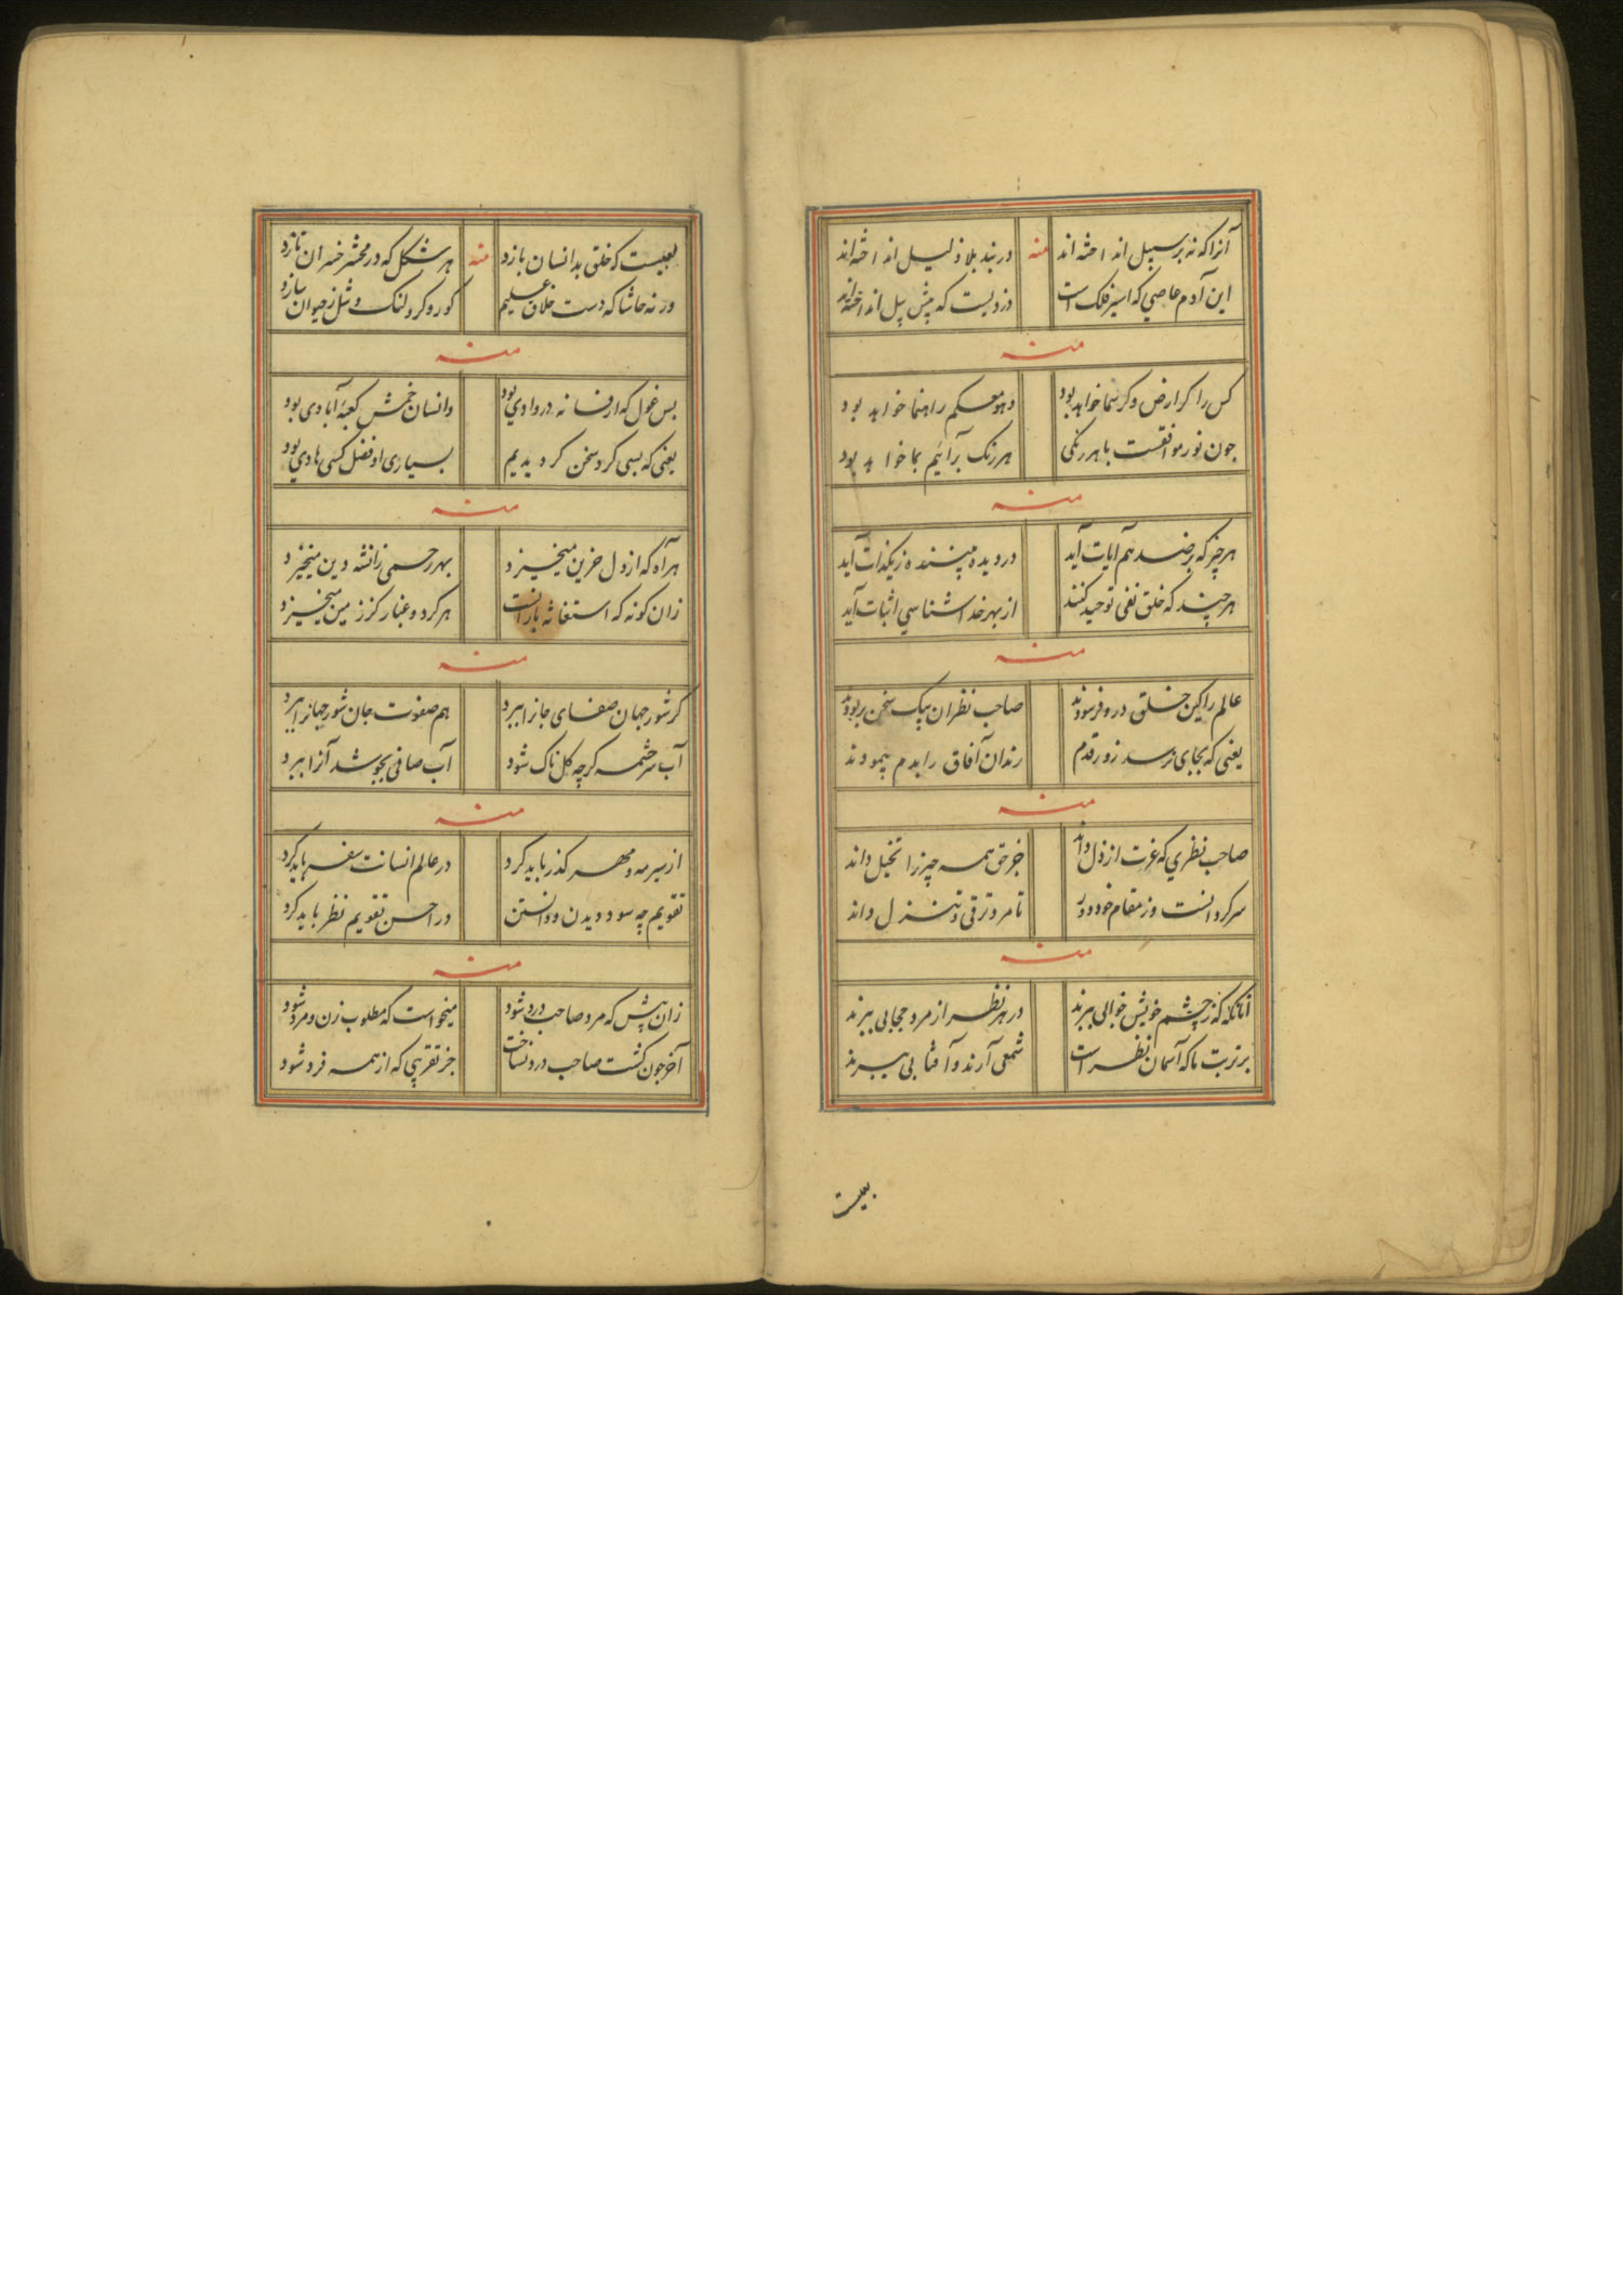 آنرا که نه بر سبیل انداخته‌اند منه در بند بلا ذلیل انداخته‌اند
این آدم عاصی که اسیر فلک است دزدیست که پیش پیل انداخته‌اند
منه
کس را کر ارض و کر سما خواهد بود وهو معکم راهنما خواهد بود
جون نور موافقست با هر رنکی هر رنک برآئیم بما خواهد بود
منه
هر چیز که بر ضد هم آیات آید در دیده بیننده ز یکذات آید
هر چند که خلق نفی توحید کنند از بهر خدا شناسی اثبات آید
منه
عالم را کین خلق درو فرسودند صاحب نظران بیک سخن بربودند
یعنی که بجای نرسد زور قدم رندان آفاق را بدم پیمودند
منه
صاحب نظری که عزت از ذل داند جز حق همه چیز را تخیل داند
سرکردانست وز مقام خود دور تا مرد ترقی و تنزل داند
منه
آنانکه ز چشم خویش خوابی ببرند در هر نظر از مرد حجابی ببرند
بر تربت ما که آسمان نظر است شمعی آرند و آفتابی ببرند
بعیست
بعیست که خلق بد انسان بازد منه هر شکل که در محشر خسران تازد
ورنه حاشا که دست خلاق علیم کور و کر و لنک و شل ز حیوان سازد
منه
بس غول که افسانه در وادی بود وانسان خمش کعبه آبادی بود
یعنی که بسی کرد سخن کردیدیم بسیاری او فضل کسی هادی بود
منه
هر آه که از دل حزین میخیزد بهر رحمی ز انشه دین میخیزد
زان کونه که استغاثه بارانست هر کرد و غبار کز زمین میخیزد
منه
کر شور جهان صفای جانرا ببرد هم صفوت جان شور جهانرا ببرد
آب سر چشمه کرچه کل ناک شود آب صافی بجوشد آنرا ببرد
منه
از سیر مه و مهر کذر باید کرد در عالم انسانت سفر باید کرد
تقویم چه سود دیدن و دانستن در احسن تقویم نظر باید کرد
منه
زان پیش که مرد صاحب درد شود میخواست که مطلوب زن و مرد شود
آخر جون کشت صاحب درد نساخت جز تقریبی که از همه فرد شود